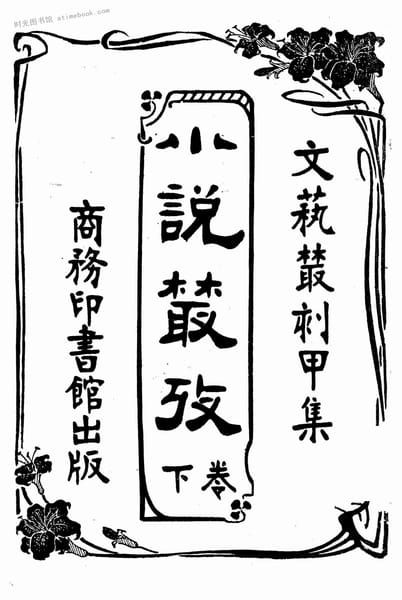 时光图书馆 atimebook.com
文藝叢刻甲集
小說叢攷
下卷
商務印書館出版